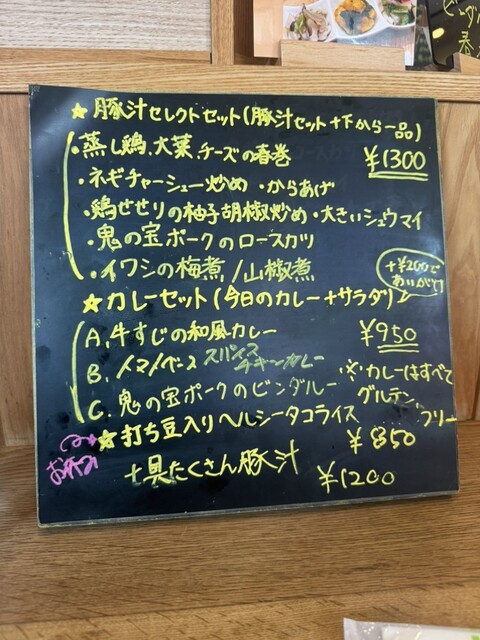 ★豚汁セレクトセット(豚汁セット+下から一品)
・蒸し鶏、大葉、チーズの春巻 ¥1300
・ネギチャーシュー炒め ・からあげ
・鶏せせりの柚子胡椒炒め ・大きいシュウマイ
・鬼の宝ポークのロースカツ
・イワシの梅煮/山椒煮
+¥200で
あいがけ!
★カレーセット(今日のカレー+サラダ)
A、牛すじの和風カレー ¥950
B、 スパイス
チキンカレー
C、鬼の宝ポークのビンダルー
※カレーはすべて
グルテン
フリー
★打ち豆入りヘルシータコライス ¥850
+具たくさん豚汁 ¥1200